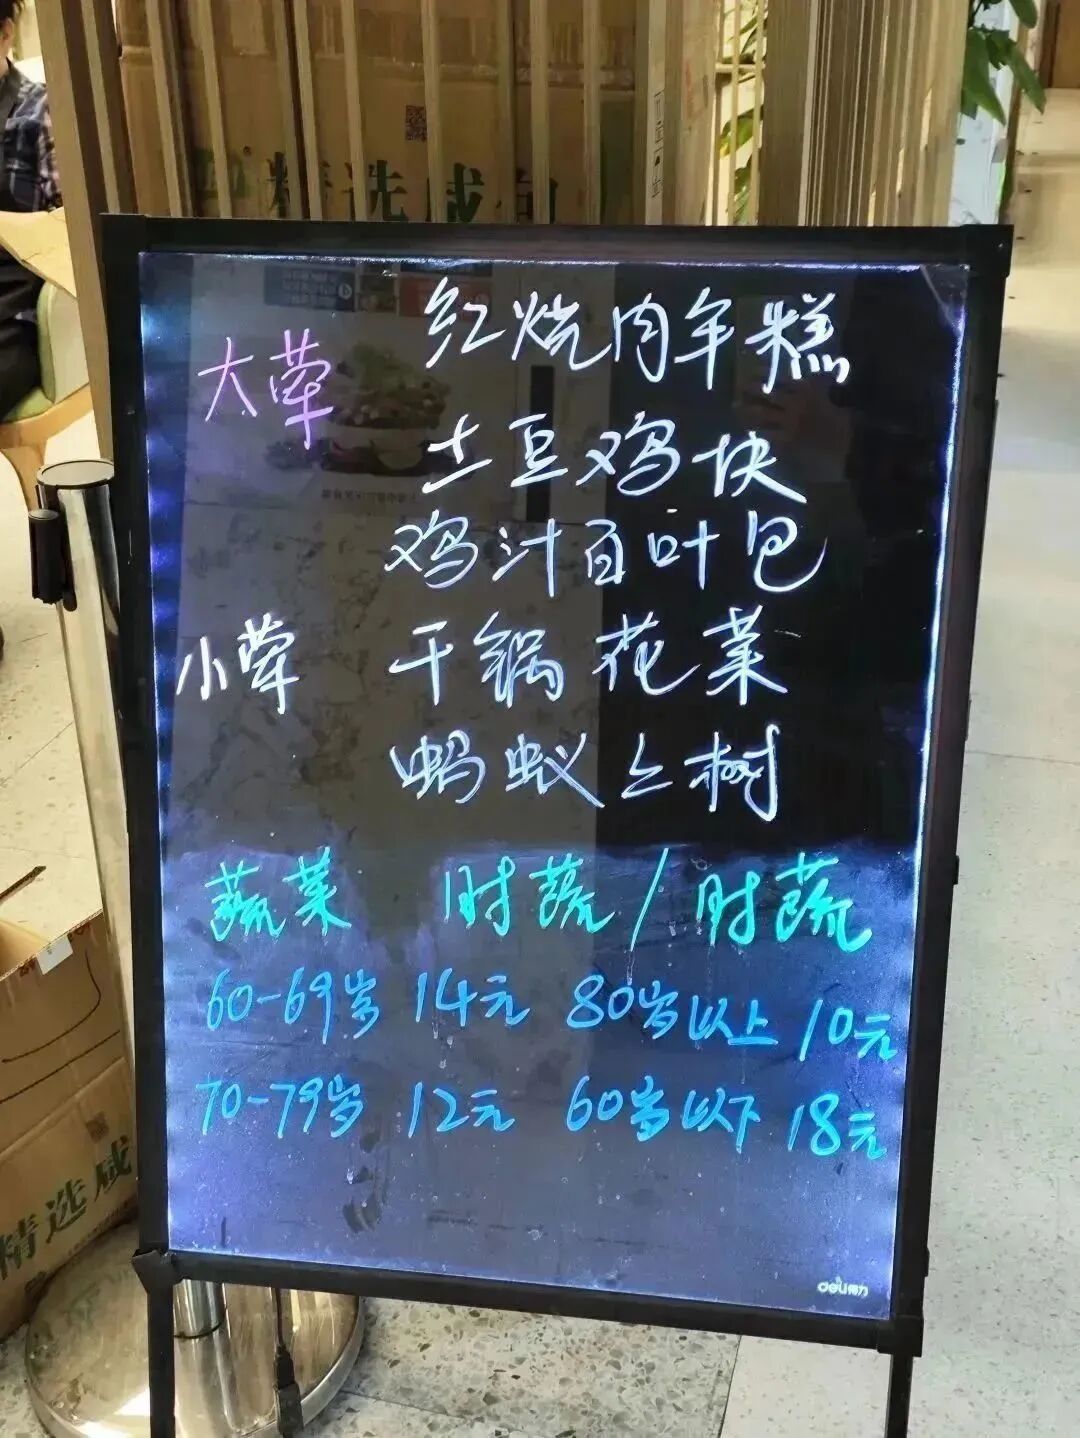 精选咸
大荤 红烧肉年糕
土豆鸡块
鸡汁百叶包
小荤 干锅花菜
蚂蚁上树
蔬菜 时蔬/时蔬
60-69岁 14元 80岁以上 10元
70-79岁 12元 60岁以下 18元
精选咸
deli得力